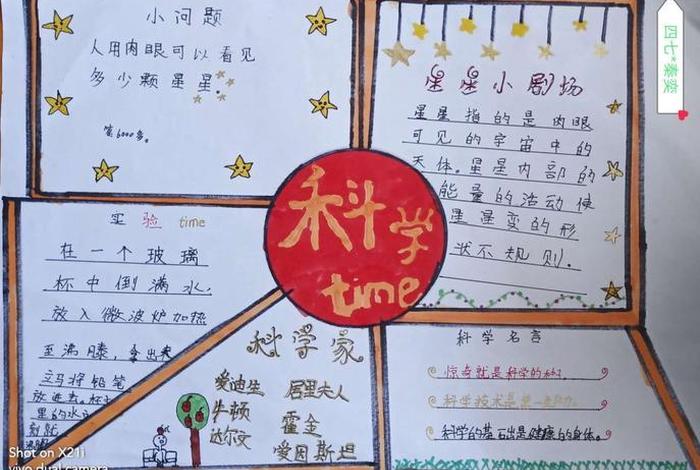 小问题
人用肉眼可以看见
多少颗星星。
答6000多。
四七*秦奕
星星小剧场
星星指的是肉眼
可见的宇宙中的
天体。星星内部的
能量的活动使
星星变的形
状不规则。
科学
time
实验 time
在一个玻璃
杯中倒满水,
放入微波炉加热
至沸腾,拿出来
立马将铅笔
放进去,杯
里的水
科学家
爱迪生 居里夫人
牛顿 霍金
达尔文 爱因斯坦
科学名言
惊奇就是科学的
科学技术是第一
科学的基石出是健康的身体。
Shot on X21i
vivo dual camera